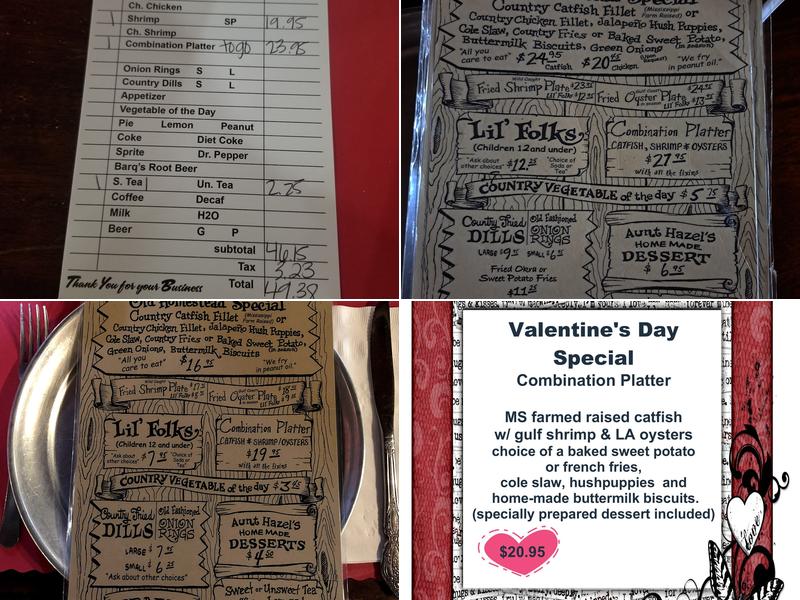 Ch. Chicken
1 Shrimp SP 19.95
Ch. Shrimp
1 Combination Platter togo 23.95
Onion Rings S L
Country Dills S L
Appetizer
Vegetable of the Day
Pie Lemon Peanut
Coke Diet Coke
Sprite Dr. Pepper
Barq's Root Beer
1 S. Tea Un. Tea 2.25
Coffee Decaf
Milk H2O
Beer G P
subtotal 46.15
Tax 3.23
Total 49.38
Thank You for your Business
Country Catfish Fillet (Mississippi Farm Raised) or
Country Chicken Fillet, Jalapeño Hush Puppies,
Cole Slaw, Country Fries or Baked Sweet Potato,
Buttermilk Biscuits, Green Onions (in season)
"All you care to eat" $24.95 Catfish $20.95 Chicken (Upon Request) "We fry in peanut oil."
Wild Caught Fried Shrimp Plate Lil' Folks
Gulf Coast Fried Oyster Plate Lil' Folks
Lil' Folks'
(Children 12 and under)
"Ask about other choices" $12.25 "Choice of Soda or Tea"
Combination Platter
CATFISH, SHRIMP & OYSTERS
$27.95
with all the fixins
COUNTRY VEGETABLE of the day $5.75
Country Fried DILLS
Old Fashioned ONION RINGS
LARGE SMALL
Fried Okra or
Sweet Potato Fries
$11.25
Aunt Hazel's
HOME MADE
DESSERT
$6.95
Old Homestead Special
Country Catfish Fillet (Mississippi Farm Raised) or
Country Chicken Fillet, Jalapeño Hush Puppies,
Cole Slaw, Country Fries or Baked Sweet Potato,
Green Onions, Buttermilk Biscuits
"All you care to eat" $16.95 "We fry in peanut oil."
Fried Shrimp Plate Lil' Folks
Fried Oyster Plate Lil' Folks
Lil' Folks'
(Children 12 and under)
"Ask about other choices" $7.95 "Choice of Soda or Tea"
Combination Platter
CATFISH SHRIMP/OYSTERS
$19.95
with all the fixins
COUNTRY VEGETABLE of the day
Country Fried DILLS
Old Fashioned ONION RINGS
LARGE
SMALL
"Ask about other choices"
Aunt Hazel's
HOME MADE
DESSERTS
$4.50
Sweet or Unsweet Tea
Valentine's Day
Special
Combination Platter
MS farmed raised catfish
w/ gulf shrimp & LA oysters
choice of a baked sweet potato
or french fries,
cole slaw, hushpuppies and
home-made buttermilk biscuits.
(specially prepared dessert included)
$20.95
Love